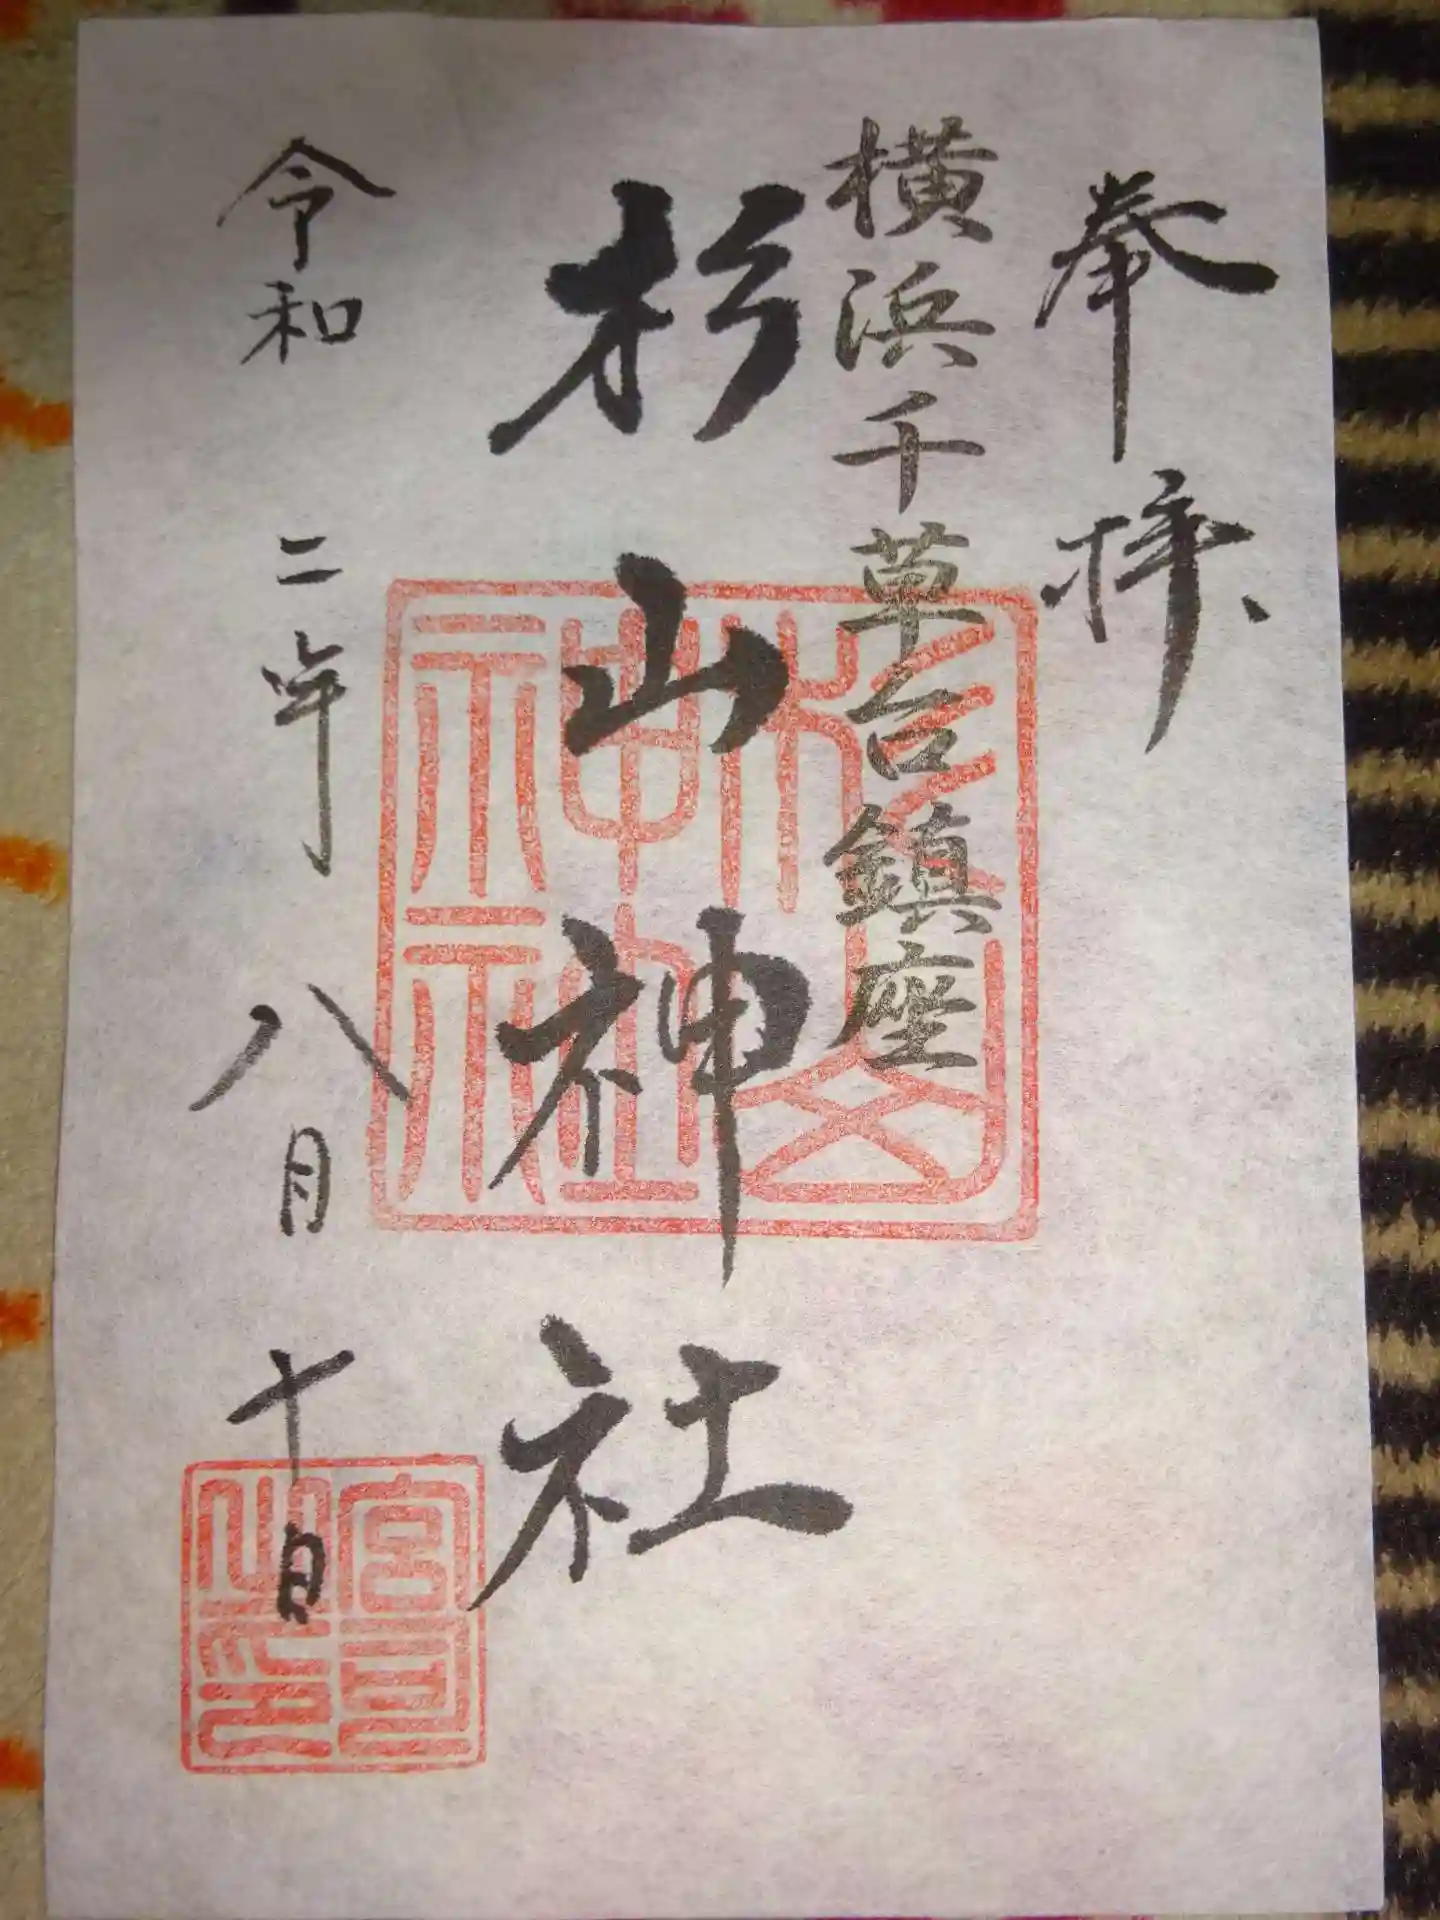 奉拝
横浜千草台鎮座
杉山神社
令和二年八月十日
杉山
神社
神社
宮司
之印